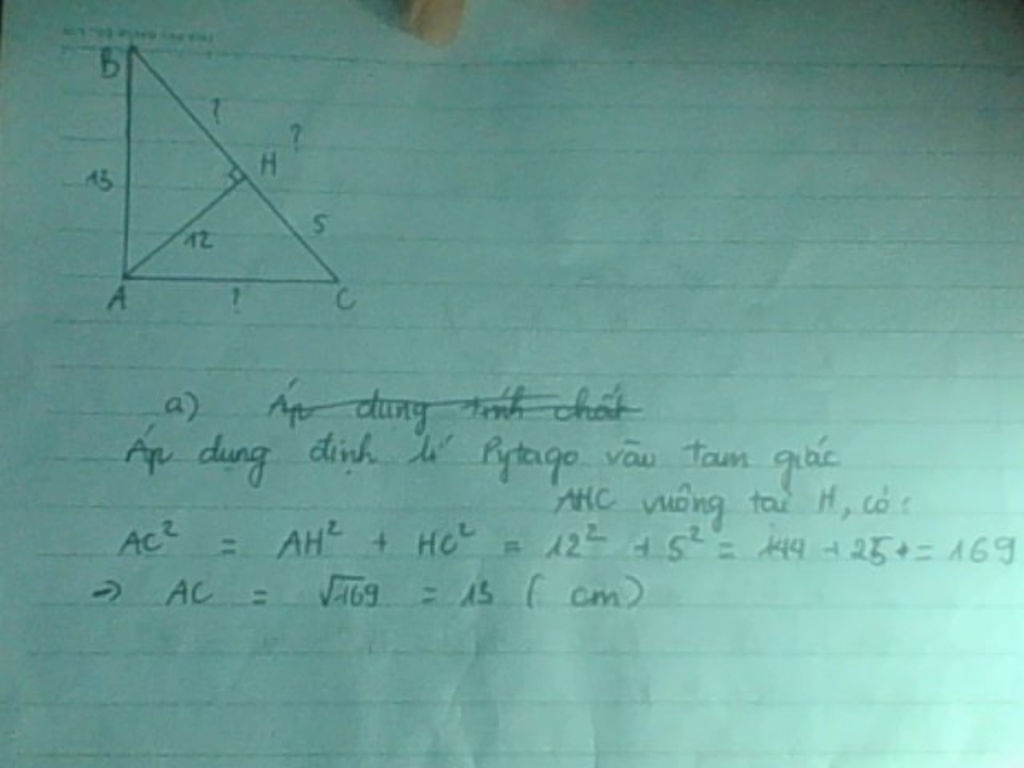 B
?
?
H
13
5
12
A
?
C
a) Áp dụng tính chất
Áp dụng định lí Pytago vào tam giác
AHC vuông tại H, có:
AC² = AH² + HC² = 12² + 5² = 144 + 25 = 169
→ AC = √169 = 13 (cm)